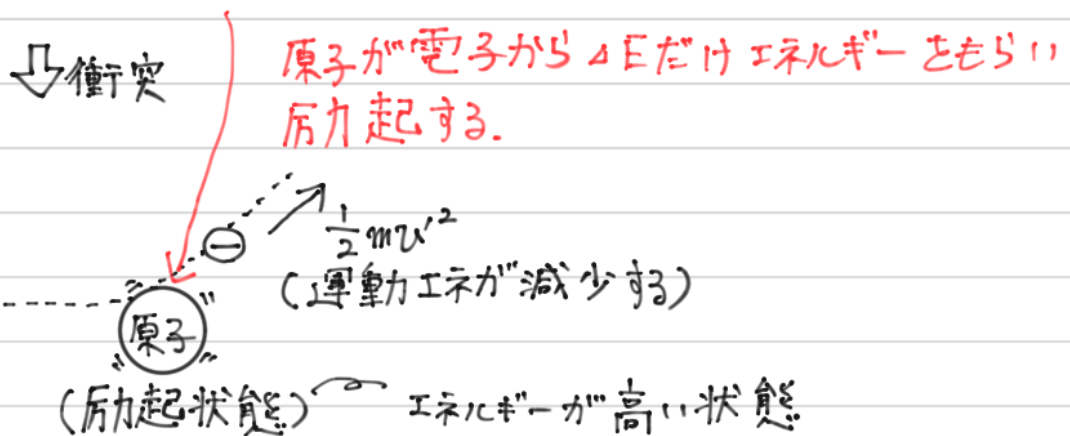 ⇩衝突
原子が電子からΔEだけエネルギーをもらい
励起する.
⊖
1/2 mv'²
(運動エネが減少する)
原子
(励起状態) エネルギーが高い状態